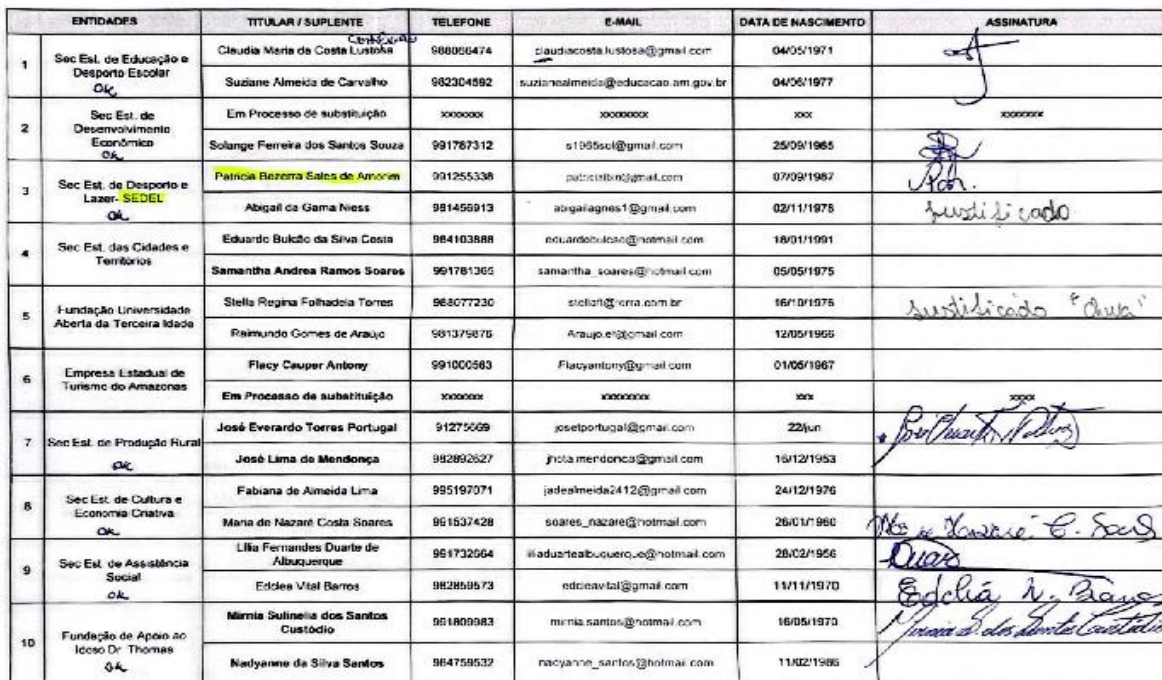 ENTIDADES TITULAR / SUPLENTE TELEFONE E-MAIL DATA DE NASCIMENTO ASSINATURA
1 Sec Est. de Educação e Desporto Escolar OK
Claudia Maria da Costa Lustosa 988066474 claudiacosta.lustosa@gmail.com 04/05/1971
Suziane Almeida de Carvalho 982304592 suzianealmeida@educacao.am.gov.br 04/06/1977
2 Sec Est. de Desenvolvimento Econômico OK
Em Processo de substituição xxxxxxx xxxxxxxx xxx xxxxxxx
Solange Ferreira dos Santos Souza 991787312 s1965sol@gmail.com 25/09/1965
3 Sec Est. de Desporto e Lazer- SEDEL OK
Patricia Bezerra Sales de Amorim 991255338 07/09/1987
Abigail da Gama Niess 981456913 abigailagnes1@gmail.com 02/11/1975 Justificado
4 Sec Est. das Cidades e Territórios
Eduardo Bulcão da Silva Costa 984103888 eduardobulcao@hotmail.com 18/01/1991
Samantha Andrea Ramos Soares 991781365 samantha_soares@hotmail.com 05/05/1975
5 Fundação Universidade Aberta da Terceira Idade
Stella Regina Folhadela Torres 988077230 16/10/1976 Justificado "chuva"
Raimundo Gomes de Araújo 981379876 12/05/1966
6 Empresa Estadual de Turismo do Amazonas
Flacy Cauper Antony 991000583 Flacyantony@gmail.com 01/05/1967
Em Processo de substituição xxxxxxx xxxxxxxx xxx xxxx
7 Sec Est. de Produção Rural OK
José Everardo Torres Portugal 91275669 josetportugal@gmail.com 22/jun
José Lima de Mendonça 982892627 jhota.mendonca@gmail.com 16/12/1953
8 Sec Est. de Cultura e Economia Criativa OK
Fabiana de Almeida Lima 995197071 jadealmeida2412@gmail.com 24/12/1976
Maria de Nazaré Costa Soares 991537428 soares_nazare@hotmail.com 26/01/1960
9 Sec Est. de Assistência Social OK
Lilia Fernandes Duarte de Albuquerque 991732664 liliaduartealbuquerque@hotmail.com 28/02/1956
Edclea Vital Barros 982859573 edcleavital@gmail.com 11/11/1970
10 Fundação de Apoio ao Idoso Dr. Thomas OK
Mirnia Sulinelia dos Santos Custódio 991809983 mirnia.santos@hotmail.com 16/05/1970
Nadyanne da Silva Santos 984759532 nadyanne_santos@hotmail.com 11/02/1986